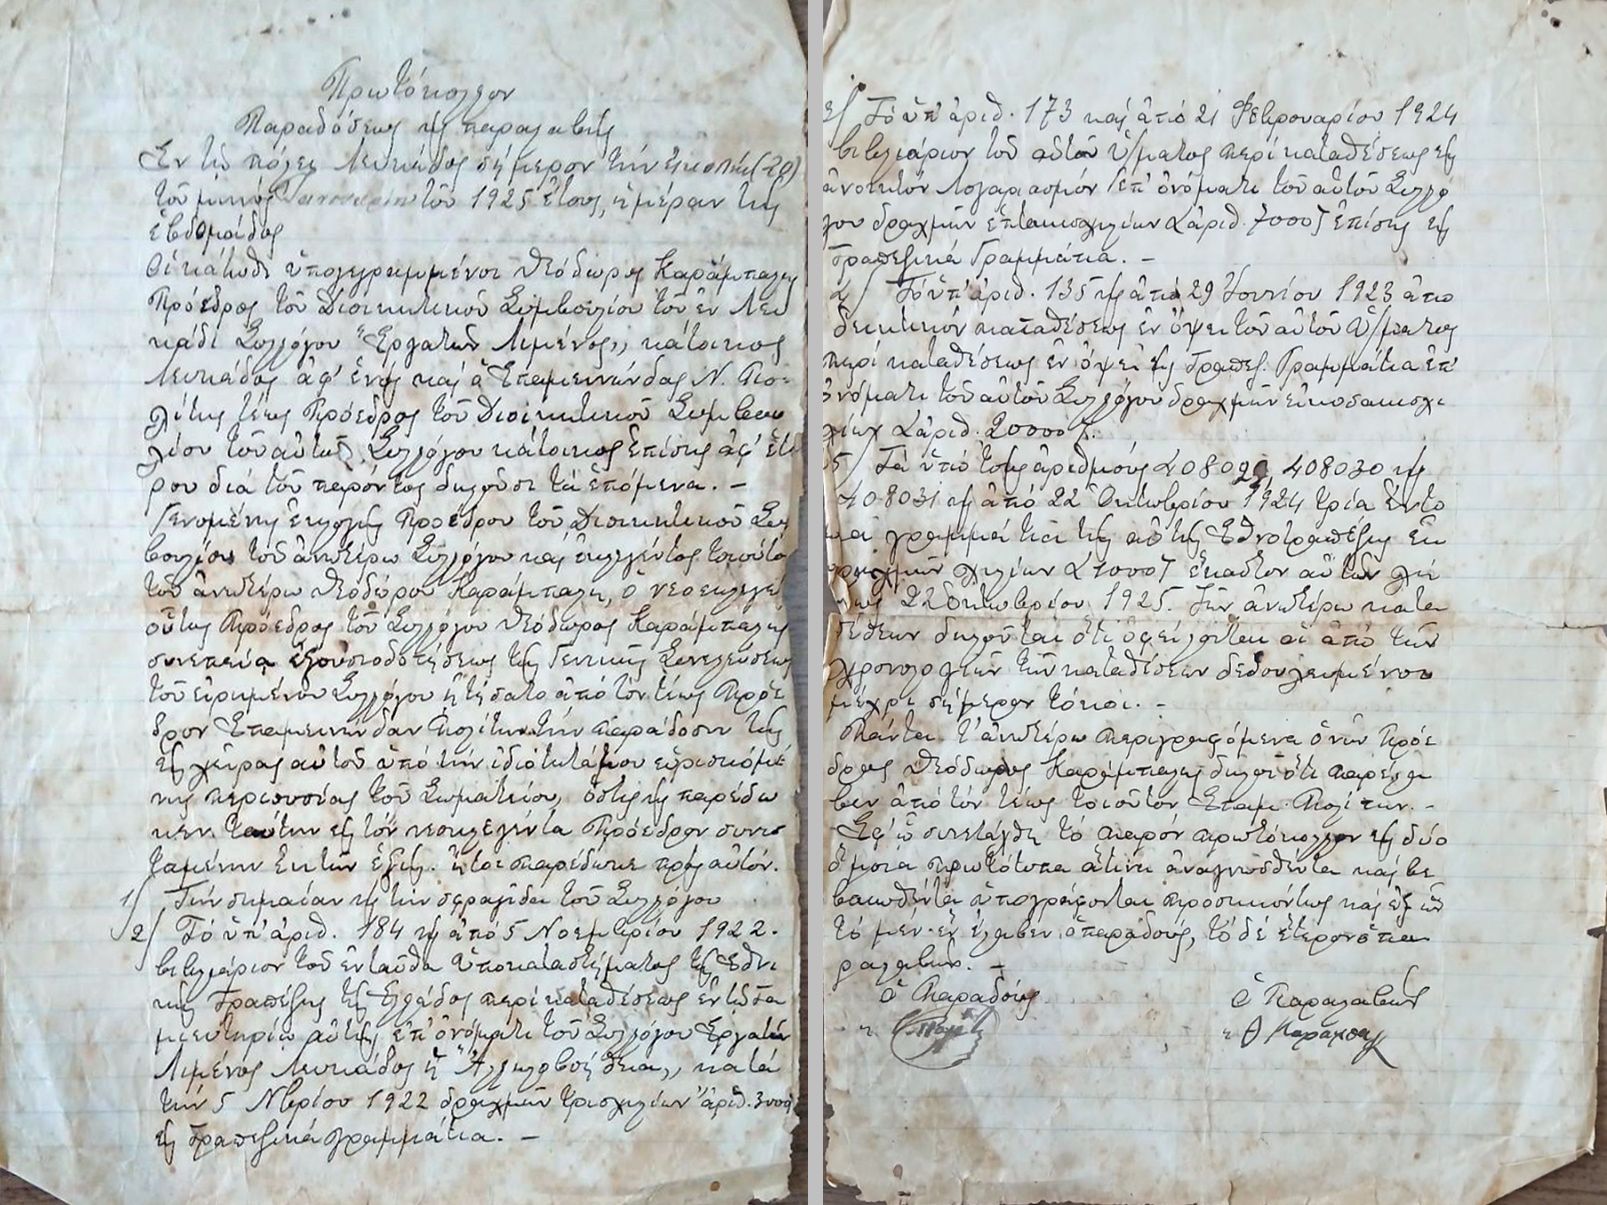 Πρωτόκολλον
Παραδόσεως κ παραλαβῆς
Ἐν τῇ πόλει Λευκάδος σήμερον τήν εἰκοστήν (20)
τοῦ μηνός Ἰανουαρίου τοῦ 1925 ἔτους, ἡμέραν τῆς
ἑβδομάδος
Οἱ κάτωθι ὑπογεγραμμένοι Θεόδωρος Καράμπαλης
Πρόεδρος τοῦ Διοικητικοῦ Συμβουλίου τοῦ ἐν Λευ
κάδι Συλλόγου "Ἐργατῶν Λιμένος,, κάτοικος
Λευκάδος ἀφ' ἑνός καί ὁ Ἐπαμεινώνδας Ν. Πο-
λίτης τέως Πρόεδρος τοῦ Διοικητικοῦ Συμβου
λίου τοῦ αὐτοῦ Συλλόγου κάτοικος ἐπίσης ἀφ' ἑτέ
ρου διά τοῦ παρόντος δηλοῦσι τά ἑπόμενα. –
Γενομένης ἐκλογῆς Προέδρου τοῦ Διοικητικοῦ Συμ
βουλίου τοῦ ἀνωτέρω Συλλόγου καί ἐκλεγέντος τοιούτου
τοῦ ἀνωτέρω Θεοδώρου Καράμπαλη, ὁ νεοεκλεγείς
οὗτος Πρόεδρος τοῦ Συλλόγου Θεόδωρος Καράμπαλης
συνεπείᾳ ἐξουσιοδοτήσεως τῆς Γενικῆς Συνελεύσεως
τοῦ εἰρημένου Συλλόγου ᾐτήσατο ἀπό τόν τέως Πρόε
δρον Ἐπαμεινώνδαν Πολίτην τήν παράδοσιν τῆς
εἰς χεῖρας αὐτοῦ ὑπό τήν ἰδιότητά του εὑρισκομέ
νης περιουσίας τοῦ Σωματείου, ὅστις κ παρέδω
κεν ταύτην εἰς τόν νεοεκλεγέντα Πρόεδρον συνισ
ταμένην ἐκ τῶν ἑξῆς. ἤτοι παρέδωκε πρός αὐτόν.
1/ Τήν σημαίαν κ τήν σφραγῖδα τοῦ Συλλόγου
2/ Τό ὑπ' ἀριθ. 184 κ ἀπό 5 Νοεμβρίου 1922.
βιβλιάριον τοῦ ἐνταῦθα Ὑποκαταστήματος τῆς Ἐθνι
κῆς Τραπέζης τῆς Ἑλλάδος περί καταθέσεως ἐν τῷ Τα
μιευτηρίῳ αὐτῆς ἐπ' ὀνόματι τοῦ Συλλόγου Ἐργατῶν
Λιμένος Λευκάδος ἡ "Ἀλληλοβοήθεια,, κατά
τήν 5 Νβρίου 1922 δραχμῶν τρισχιλίων "ἀριθ. 3000
εἰς Τραπεζικά γραμμάτια. –
3/ Τό ὑπ' ἀριθ. 173 καί ἀπό 21 Φεβρουαρίου 1924
βιβλιάριον τοῦ αὐτοῦ Ὑ/ματος περί καταθέσεως εἰς
ἀνοικτόν Λογαριασμόν ἐπ' ὀνόματι τοῦ αὐτοῦ Συλλό
γου δραχμῶν ἑπτακισχιλίων (ἀριθ. 7000) ἐπίσης εἰς
Τραπεζικά Γραμμάτια. –
4/ Τό ὑπ' ἀριθ. 135 κ ἀπό 29 Ἰουνίου 1923 ἀπο
δεικτικόν καταθέσεως ἐν ὄψει τοῦ αὐτοῦ Ὑ/ματος
περί καταθέσεως ἐν ὄψει εἰς Τραπεζ. Γραμμάτια ἐπ'
ὀνόματι τοῦ αὐτοῦ Συλλόγου δραχμῶν εἰκοσακισχι
λίων (ἀριθ. 20000).
5/ Τά ὑπό τούς ἀριθμούς 408029 408030 κ
408031 κ ἀπό 22 Ὀκτωβρίου 1924 τρία ἔντο
κα γραμμάτια τῆς αὐτῆς Ἐθνοτραπέζης ἐκ
δραχμῶν χιλίων (1000) ἕκαστον αὐτῶν λή
ξεως 22 Ὀκτωβρίου 1925. Τῶν ἀνωτέρω κατα
θέσεων δηλοῦται ὅτι ὀφείλονται οἱ ἀπό τῶν
χρονολογιῶν τῶν καταθέσεων δεδουλευμένοι
μέχρι σήμερον τόκοι. –
Πάντα τ' ἀνωτέρω περιγραφόμενα ὁ νῦν Πρόε
δρος Θεόδωρος Καράμπαλης δηλοῖ ὅτι παρέλα
βεν ἀπό τόν τέως τοιοῦτον Ἐπαμ. Πολίτην. –
Ἐφ' ᾧ συνετάχθη τό παρόν πρωτόκολλον εἰς δύο
ὅμοια πρωτότυπα ἅτινα ἀναγνωσθέντα καί βε
βαιωθέντα ὑπογράφονται προσηκόντως καί ἐξ ὧν
τό μέν ἕν ἔλαβεν ὁ παραδούς, τό δέ ἕτερον ὁ πα
ραλαβών. –
Ὁ Παραδούς
Ὁ Παραλαβών
Θ Καραμπαλ